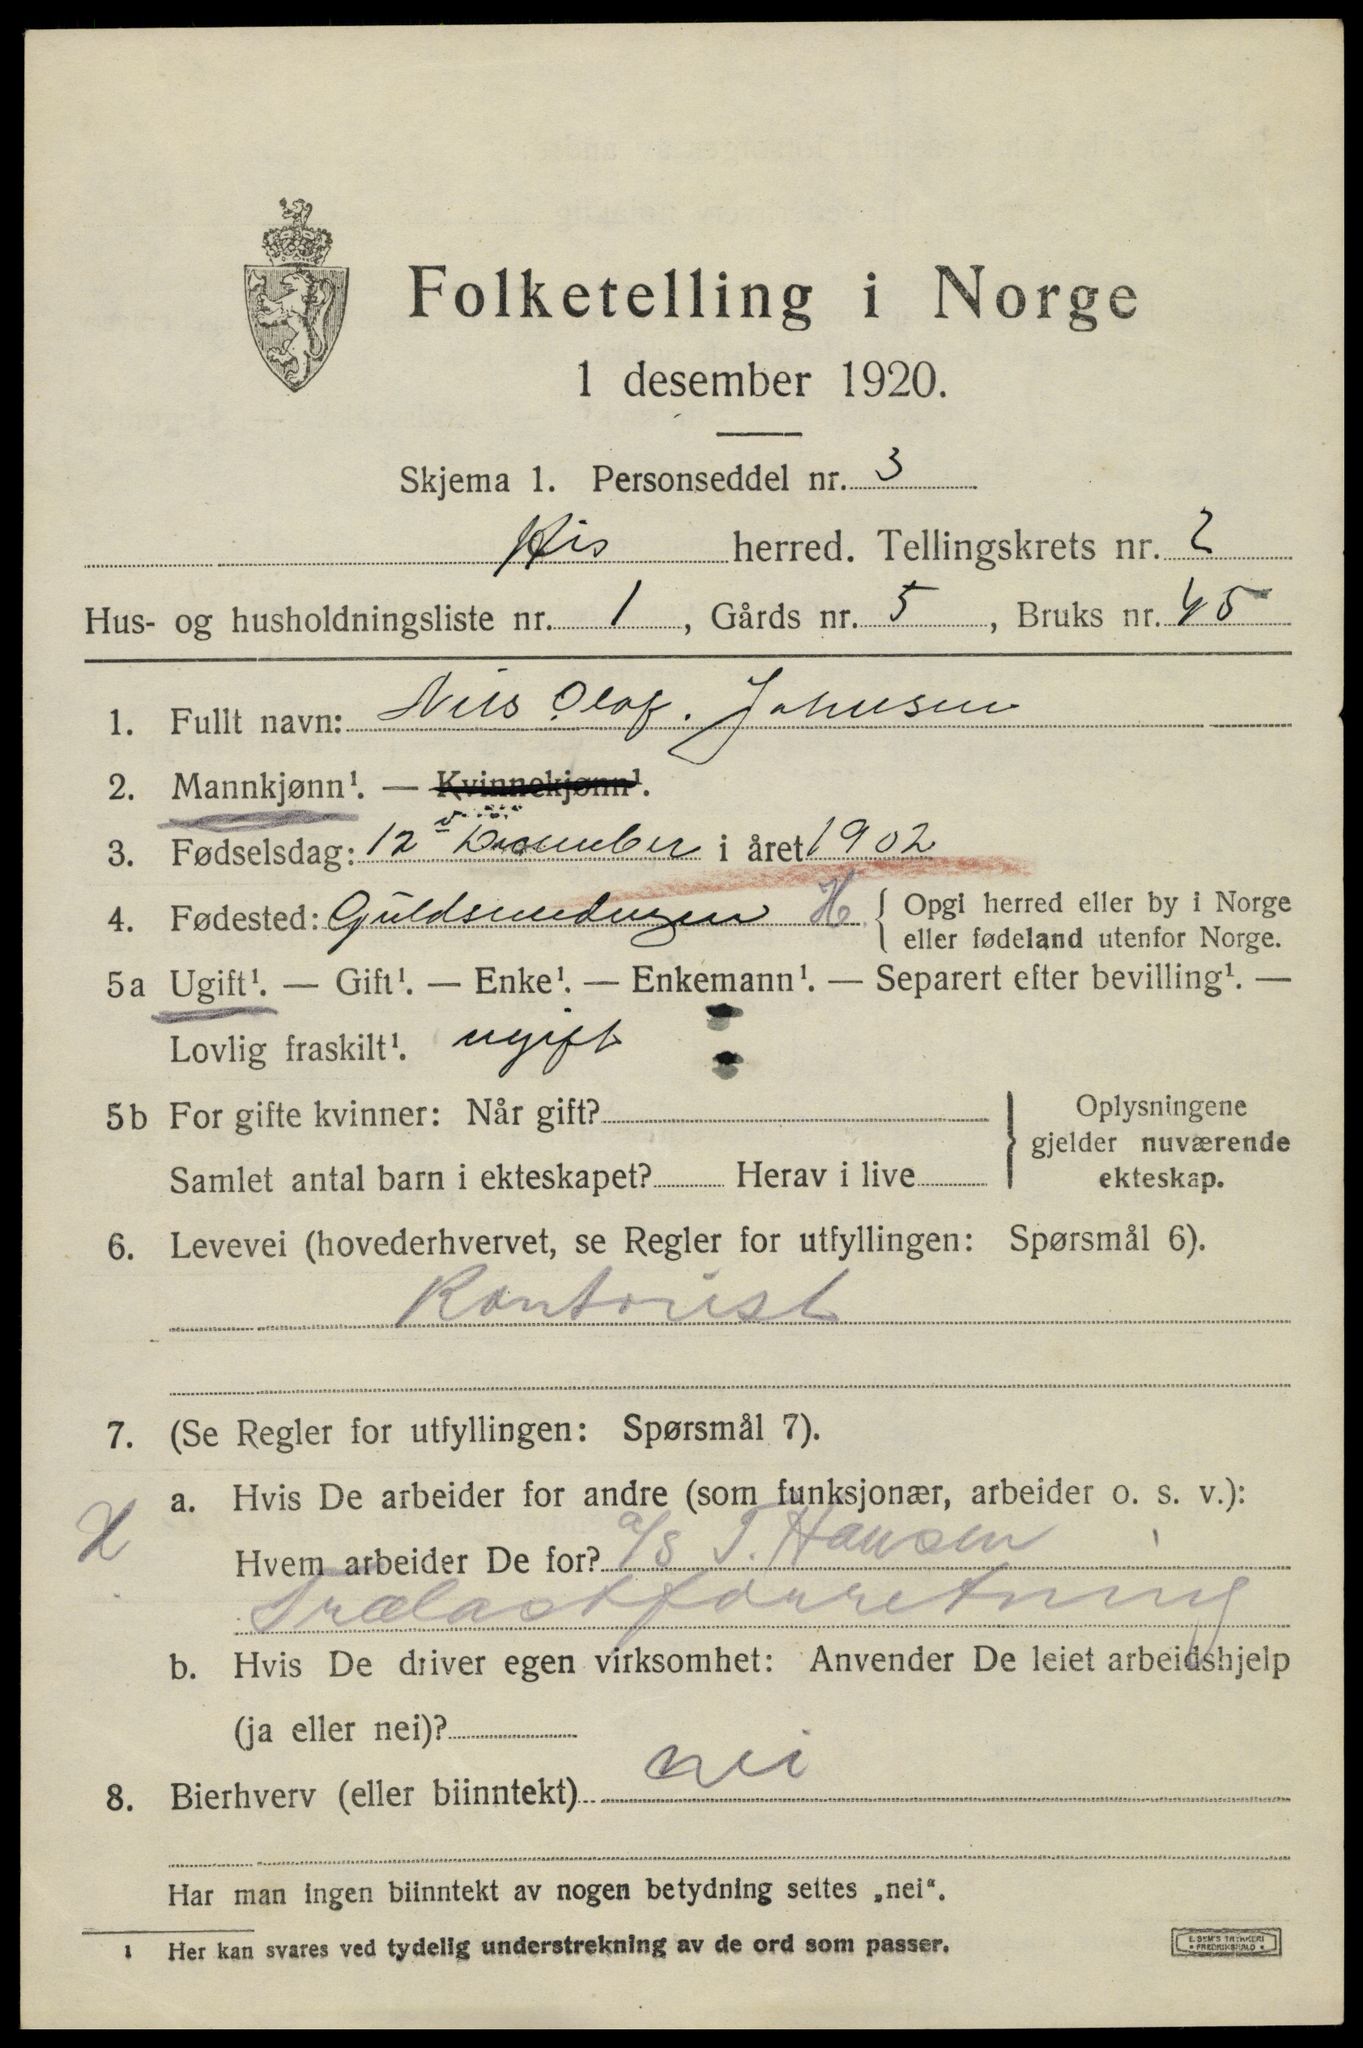 Folketelling i Norge
1 desember 1920.
Skjema 1. Personseddel nr. 3
His herred. Tellingskrets nr. 2
Hus- og husholdningsliste nr. 1, Gårds nr. 5, Bruks nr. 45
1. Fullt navn: Nils Olaf. Johnsen
2. Mannkjønn¹. — Kvinnekjønn¹.
3. Fødselsdag: 12 December i året 1902
4. Fødested: Guldsmedengen H { Opgi herred eller by i Norge
eller fødeland utenfor Norge.
5a Ugift¹. — Gift¹. — Enke¹. — Enkemann¹. — Separert efter bevilling¹. —
Lovlig fraskilt¹. ugift
5b For gifte kvinner: Når gift?
Samlet antal barn i ekteskapet? Herav i live
Oplysningene
gjelder nuværende
ekteskap.
6. Levevei (hovederhvervet, se Regler for utfyllingen: Spørsmål 6).
Kontorist
7. (Se Regler for utfyllingen: Spørsmål 7).
a. Hvis De arbeider for andre (som funksjonær, arbeider o. s. v.):
Hvem arbeider De for? a/s T. Hansen
Trælastforretning
b. Hvis De driver egen virksomhet: Anvender De leiet arbeidshjelp
(ja eller nei)?
8. Bierhverv (eller biinntekt) nei
Har man ingen biinntekt av nogen betydning settes „nei“.
¹ Her kan svares ved tydelig understrekning av de ord som passer.
E. SEM'S TRYKKERI
FREDRIKSHALD